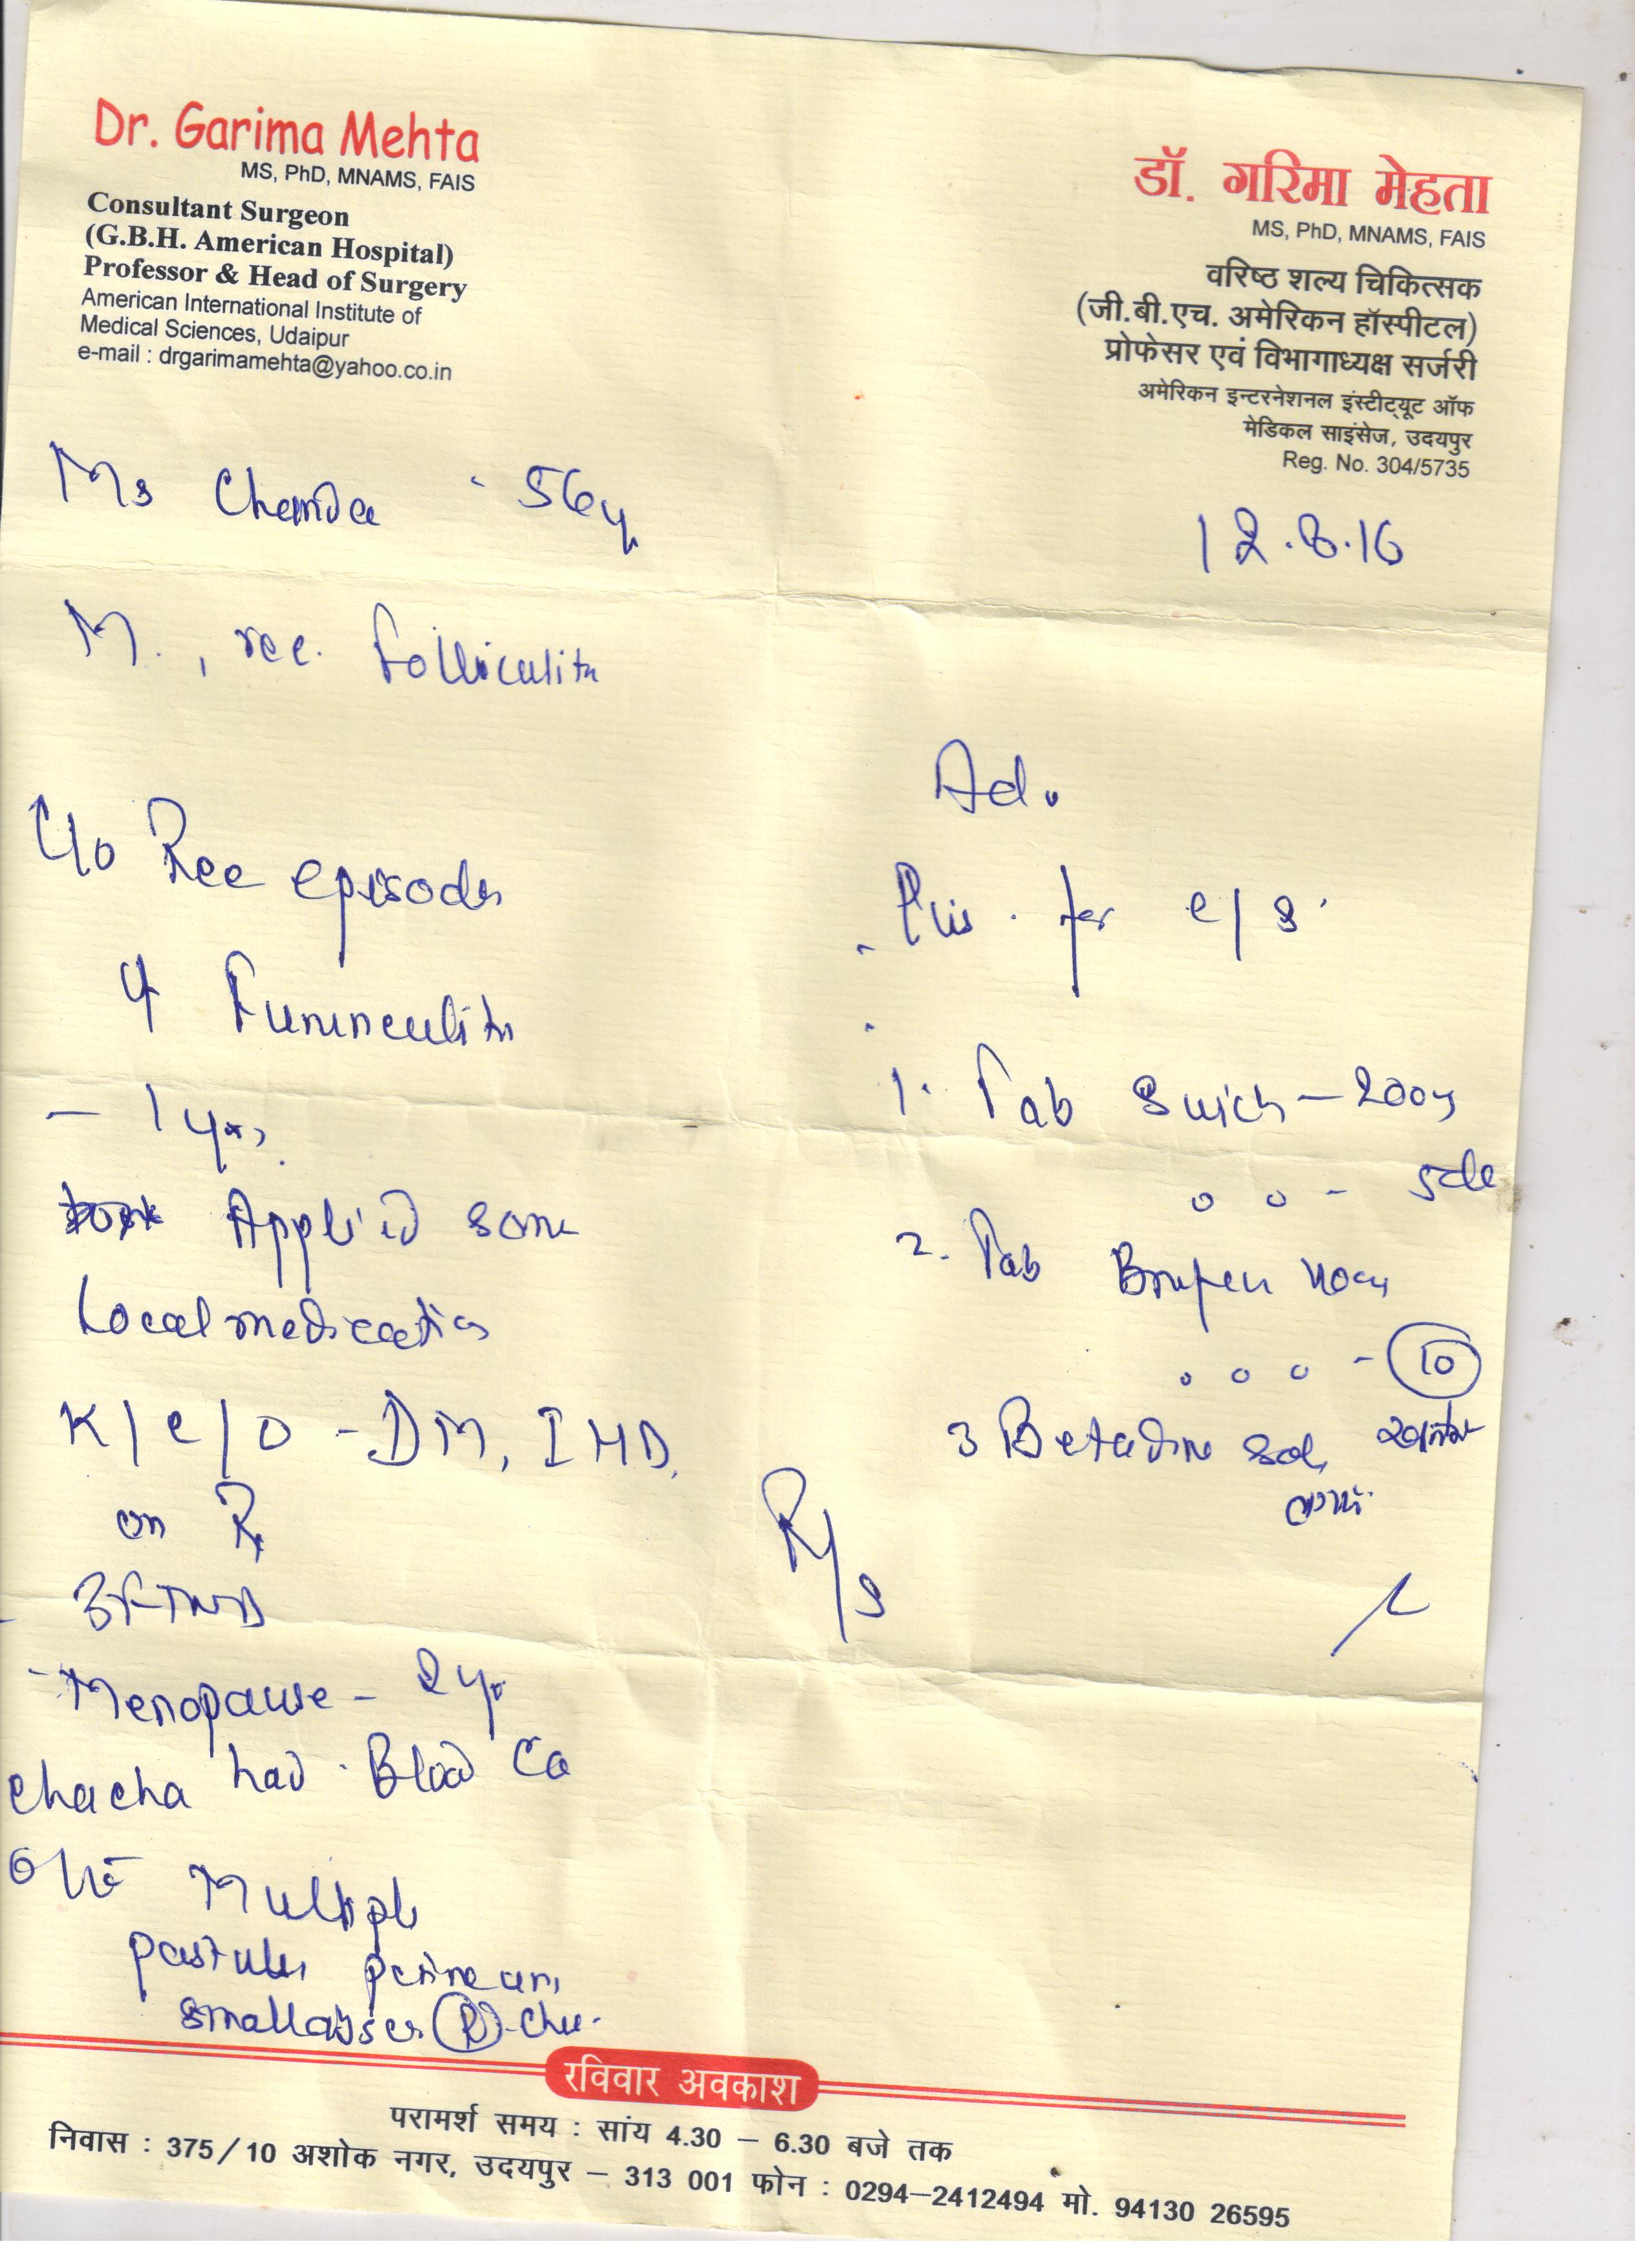 Dr. Garima Mehta
MS, PhD, MNAMS, FAIS
Consultant Surgeon
(G.B.H. American Hospital)
Professor & Head of Surgery
American International Institute of
Medical Sciences, Udaipur
e-mail : drgarimamehta@yahoo.co.in
डॉ. गरिमा मेहता
MS, PhD, MNAMS, FAIS
वरिष्ठ शल्य चिकित्सक
(जी.बी.एच. अमेरिकन हॉस्पीटल)
प्रोफेसर एवं विभागाध्यक्ष सर्जरी
अमेरिकन इन्टरनेशनल इंस्टीट्यूट ऑफ
मेडिकल साइंसेज, उदयपुर
Reg. No. 304/5735
Ms Chanda - 56y
12.8.16
rec. Folliculitis
C/o Rec episodes
of Furunculitis
- 1 yr.
Applied some
Local medication
K/c/o - DM, IHD,
on R
3FTND
- Menopause - 2yr
Chacha had Blood Ca
O/E Multiple
pustules perineum,
small abscess (R)
Adv.
- Pus for c/s.
1. Tab 200mg
o o - 5
2. Tab Brufen 400mg
o o o - 10
3 Betadine sol.
R/s
रविवार अवकाश
परामर्श समय : सांय 4.30 – 6.30 बजे तक
निवास : 375/10 अशोक नगर, उदयपुर – 313 001 फोन : 0294–2412494 मो. 94130 26595